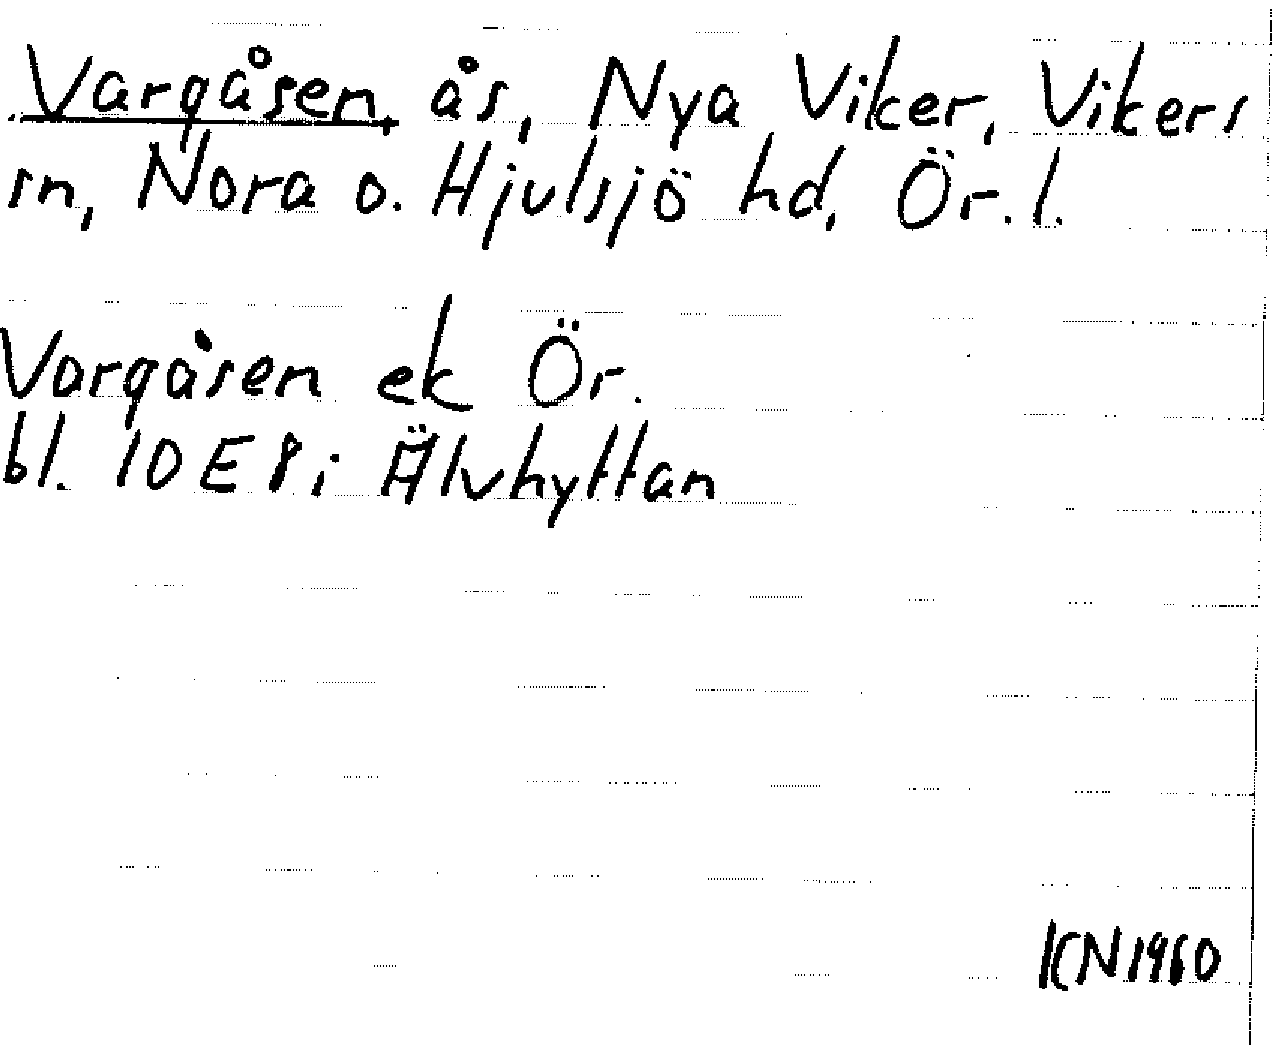 Vargåsen, ås, Nya Viker, Vikers
sn, Nora o. Hjulsjö hd, Ör. l.
Vargåsen ek Ör.
bl. 10 E 8 i Älvhyttan
KN 1960